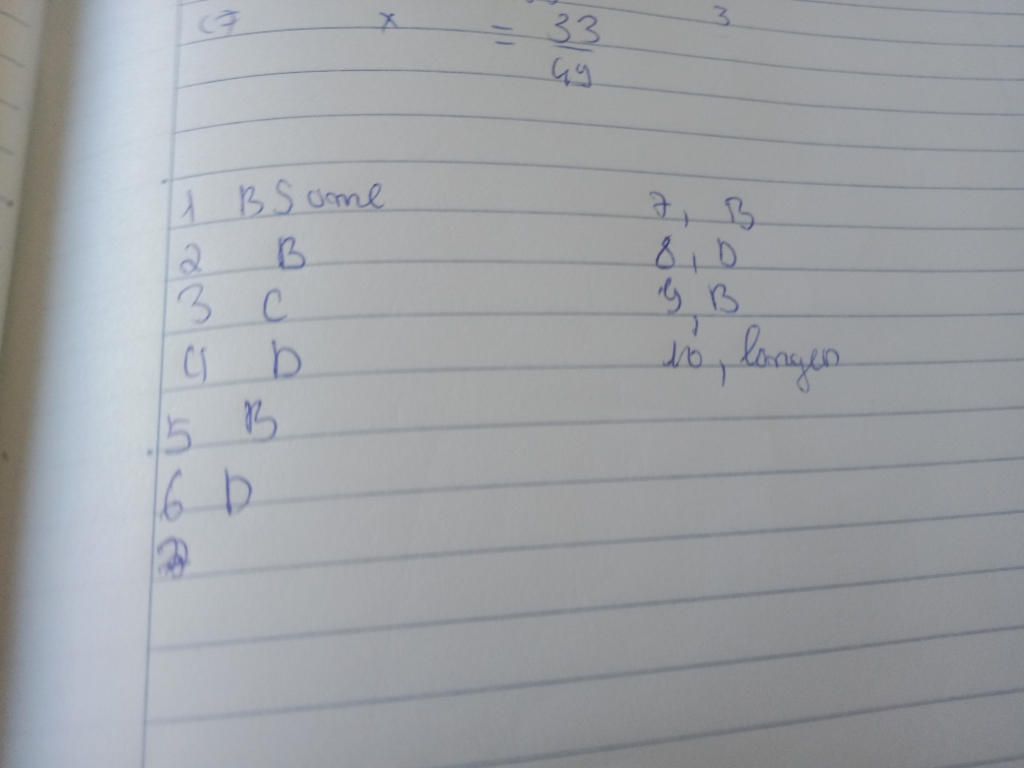 x = 33 3
49
1 B Some
2 B
3 C
4 D
5 B
6 D
7, B
8, D
9, B
10, longer